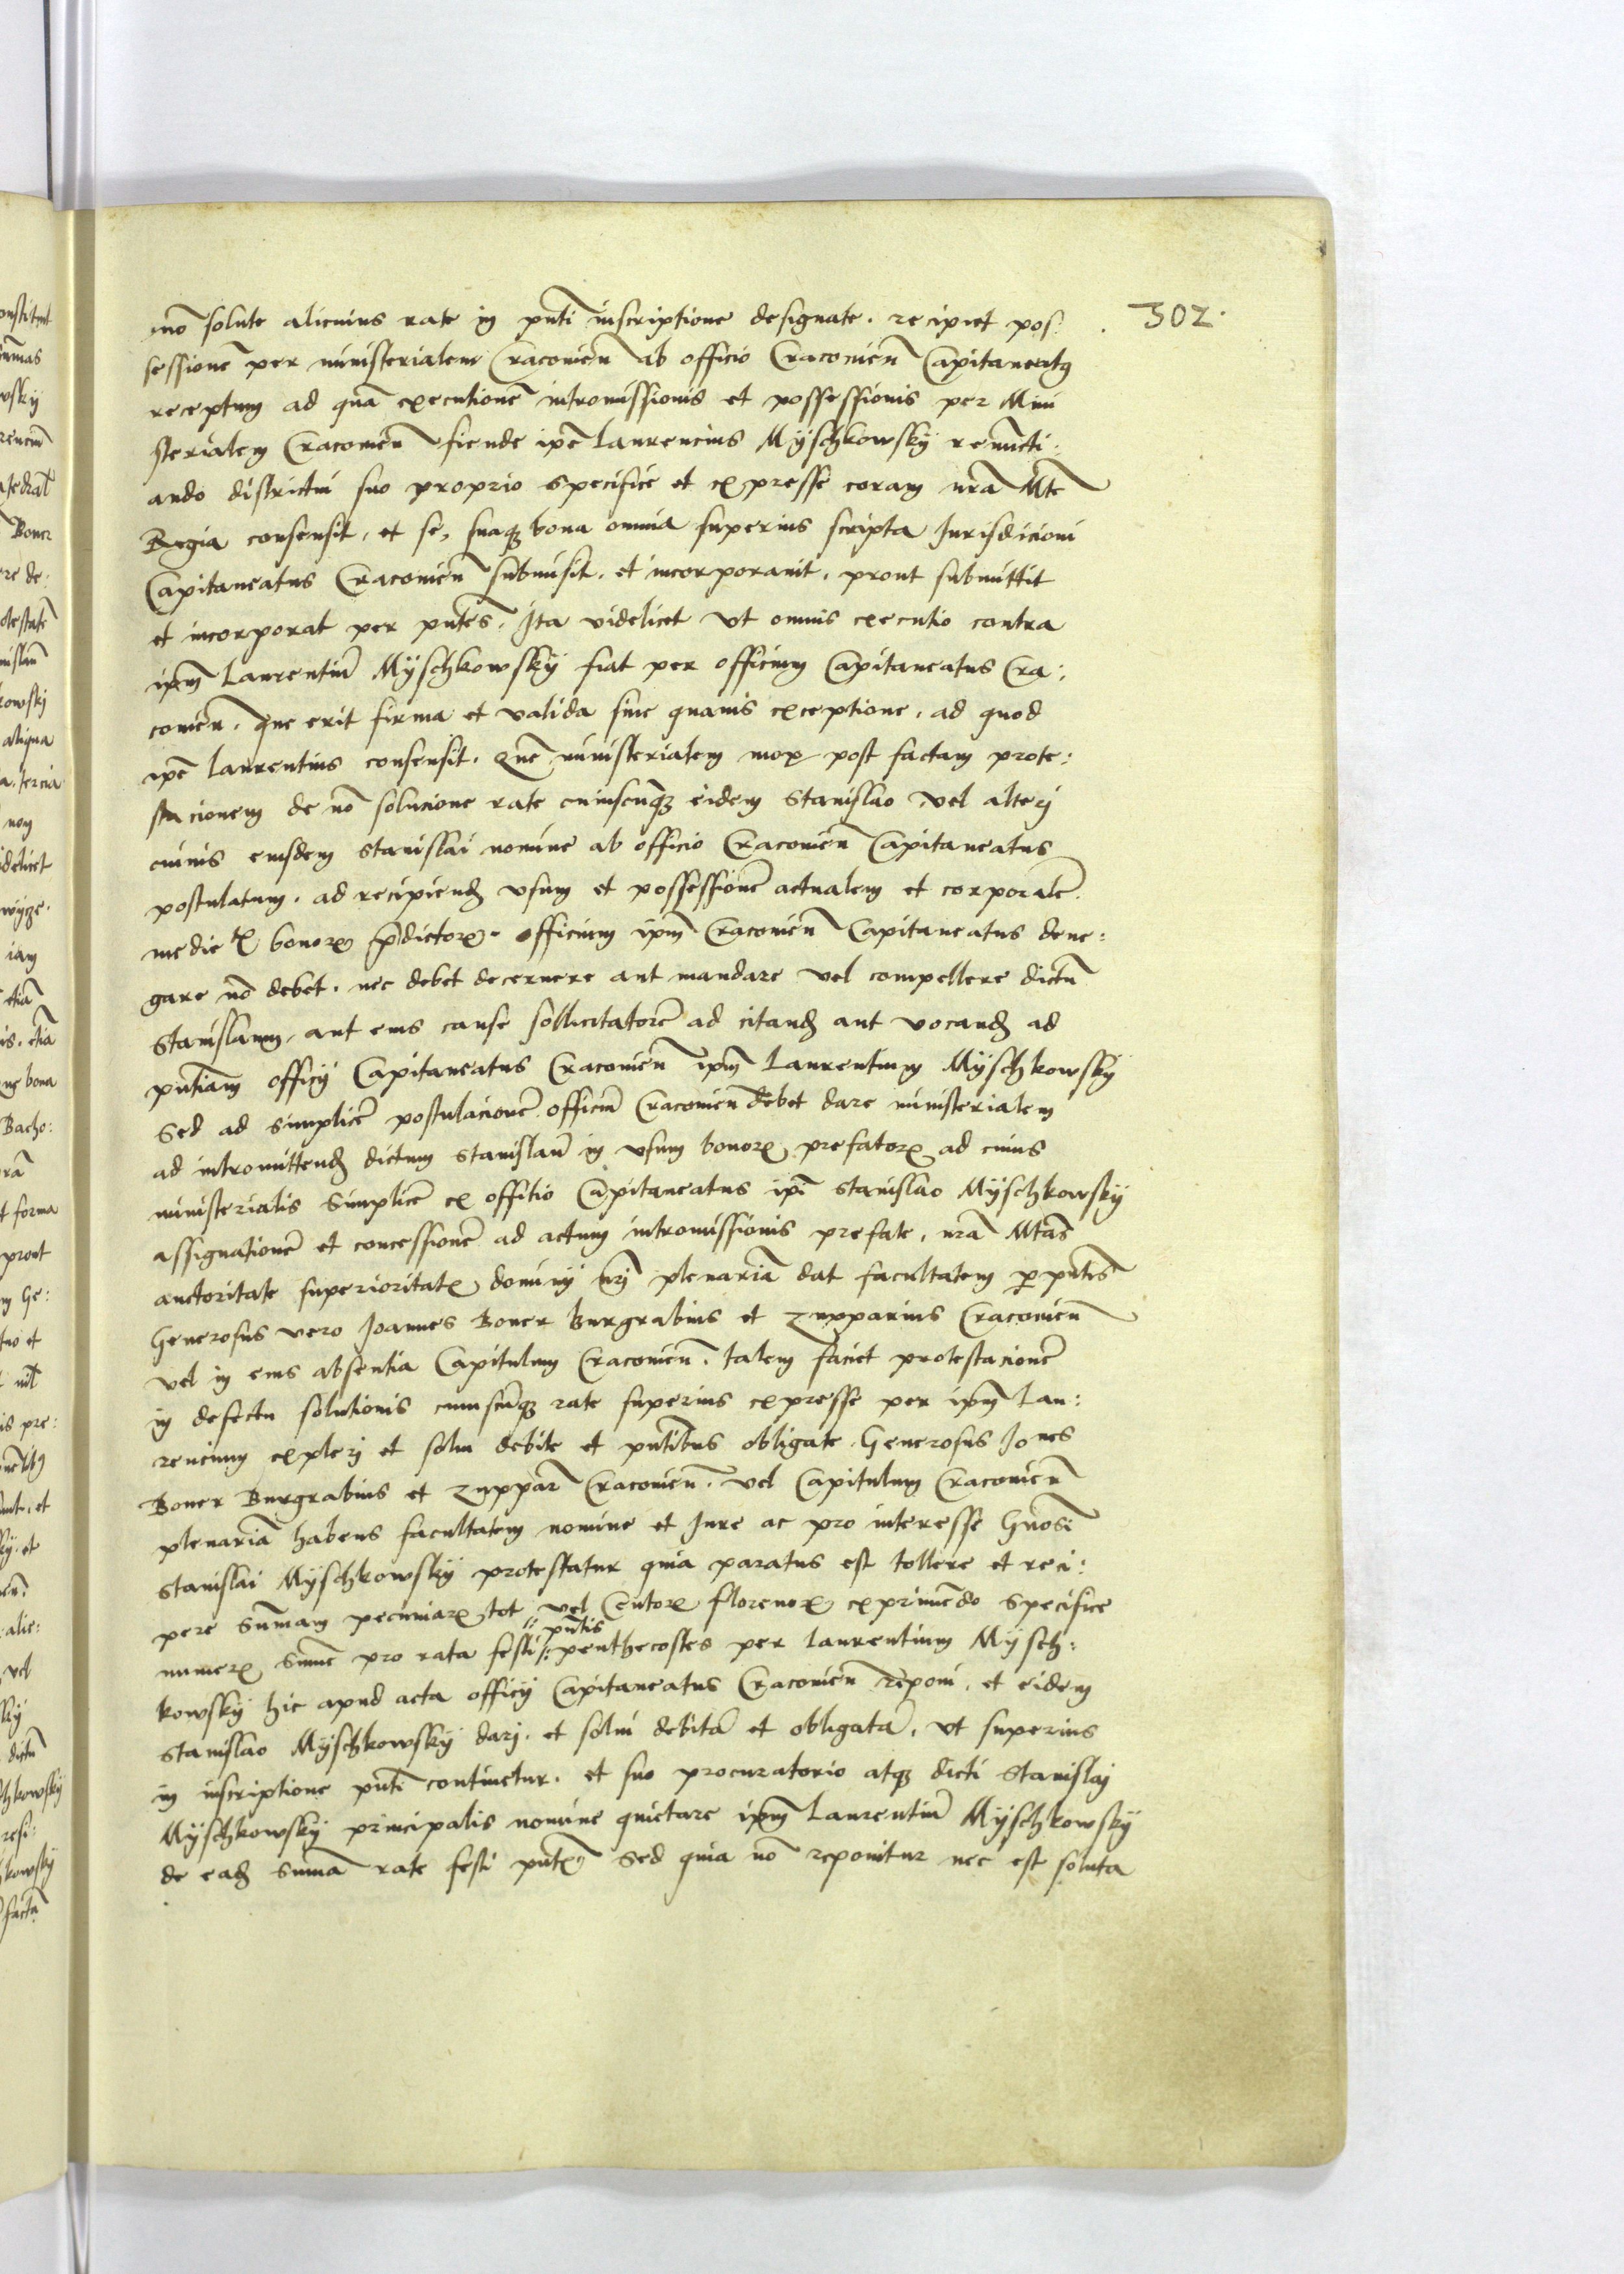 302.
nō solute alicuius rate in pn̄ti inscriptione designate. recipiet pos:
sessionē per ministerialem Cracouien̄ ab officio Cracouien̄ Capitaneatus
receptum ad quā executionē intromissionis et possessionis per Mini
sterialem Cracouien̄ fiende ip̄e Laurencius Mÿschkowskÿ renuncti:
ando districtui suo proprio specifice et expresse coram nrā Mte
Regia consensit, et se, suaqʒ bona omnia superius scripta Jurisdicioni
Capitaneatus Cracouien̄ submisit. et incorporauit. prout submittit
et incorporat per pn̄tes. Ita videlicet vt omnis executio contra
ipm̄ Laurentiū Mÿschkowskÿ fiat per officium Capitaneatus Cra:
couien̄. que erit firma et valida sine quauis exceptione. ad quod
ip̄e Laurentius consensit. Quē ministerialem mox post factam prote:
stacionem de nō solucione rate cuiuscunqʒ eidem Stanislao vel alterj
cuiuis eiusdem Stanislai nomine ab officio Cracouien̄ Capitaneatus
postulatum. ad recipiend̄ vsum et possessionē actualem et corporalē
medietꝭ bonorꝝ p̄dictorꝝ officium ipm̄ Cracouien̄ Capitaneatus dene:
gare nō debet. nec debet decernere aut mandare vel compellere dictū
Stanislaum, aut eius cause sollicitatorē ad citand̄ aut vocand̄ ad
pn̄tiam officÿ Capitaneatus Cracouien̄ ipm̄ Laurentium Mÿschkowskÿ
Sed ad simplicē postulacionē officiū Cracouien̄ debet dare ministerialem
ad intromittend̄ dictum Stanislaū in vsum bonorꝝ prefatorꝝ ad cuius
ministerialis simplicē ex offitio Capitaneatus ip̄i Stanislao Mÿschkowskÿ
assignationē et concessionē ad actum intromissionis prefate, nrā Mtas
auctoritate superioritatꝭ dominÿ nrj plenariā dat facultatem ꝑ pn̄tes
Generosus vero Joannes Boner Burgrabius et Zupparius Cracouien̄
vel in eius absentia Capitulum Cracouien̄. talem faciet protestacionē
in defectu solutionis cuiuscūqʒ rate superius expresse per ipm̄ Lau:
rencium explerj et solui debite et pn̄tibus obligate. Generosus Joꝫnes
Boner Burgrabius et Zuppar̄ Cracouien̄. vel Capitulum Cracouien̄
plenariā habens facultatem nomine et Jure ac pro interesse Gn̄osi
Stanislai Mÿschkowskÿ protestatur quia paratus est tollere et reci:
pere Sum̄am pecuniarꝝ tot vel Centorꝝ florenorꝝ exprimēdo specifice
numerꝝ sum̄e pro rata festi pn̄tis penthecostes per Laurentium Mÿsch:
kowskÿ hic apud acta officÿ Capitaneatus Cracouien̄ reponi, et eidem
Stanislao Mÿschkowskÿ darj. et solui debitā et obligatā, vt superius
in inscriptione pn̄ti continetur. et suo procuratorio atqʒ dicti Stanislaj
Mÿschkowskÿ principalis nomine quietare ipm̄ Laurentiū Mÿschkowskÿ
de ead̄ sum̄a rate festi pn̄tꝭ Sed quia nō reponitur nec est soluta